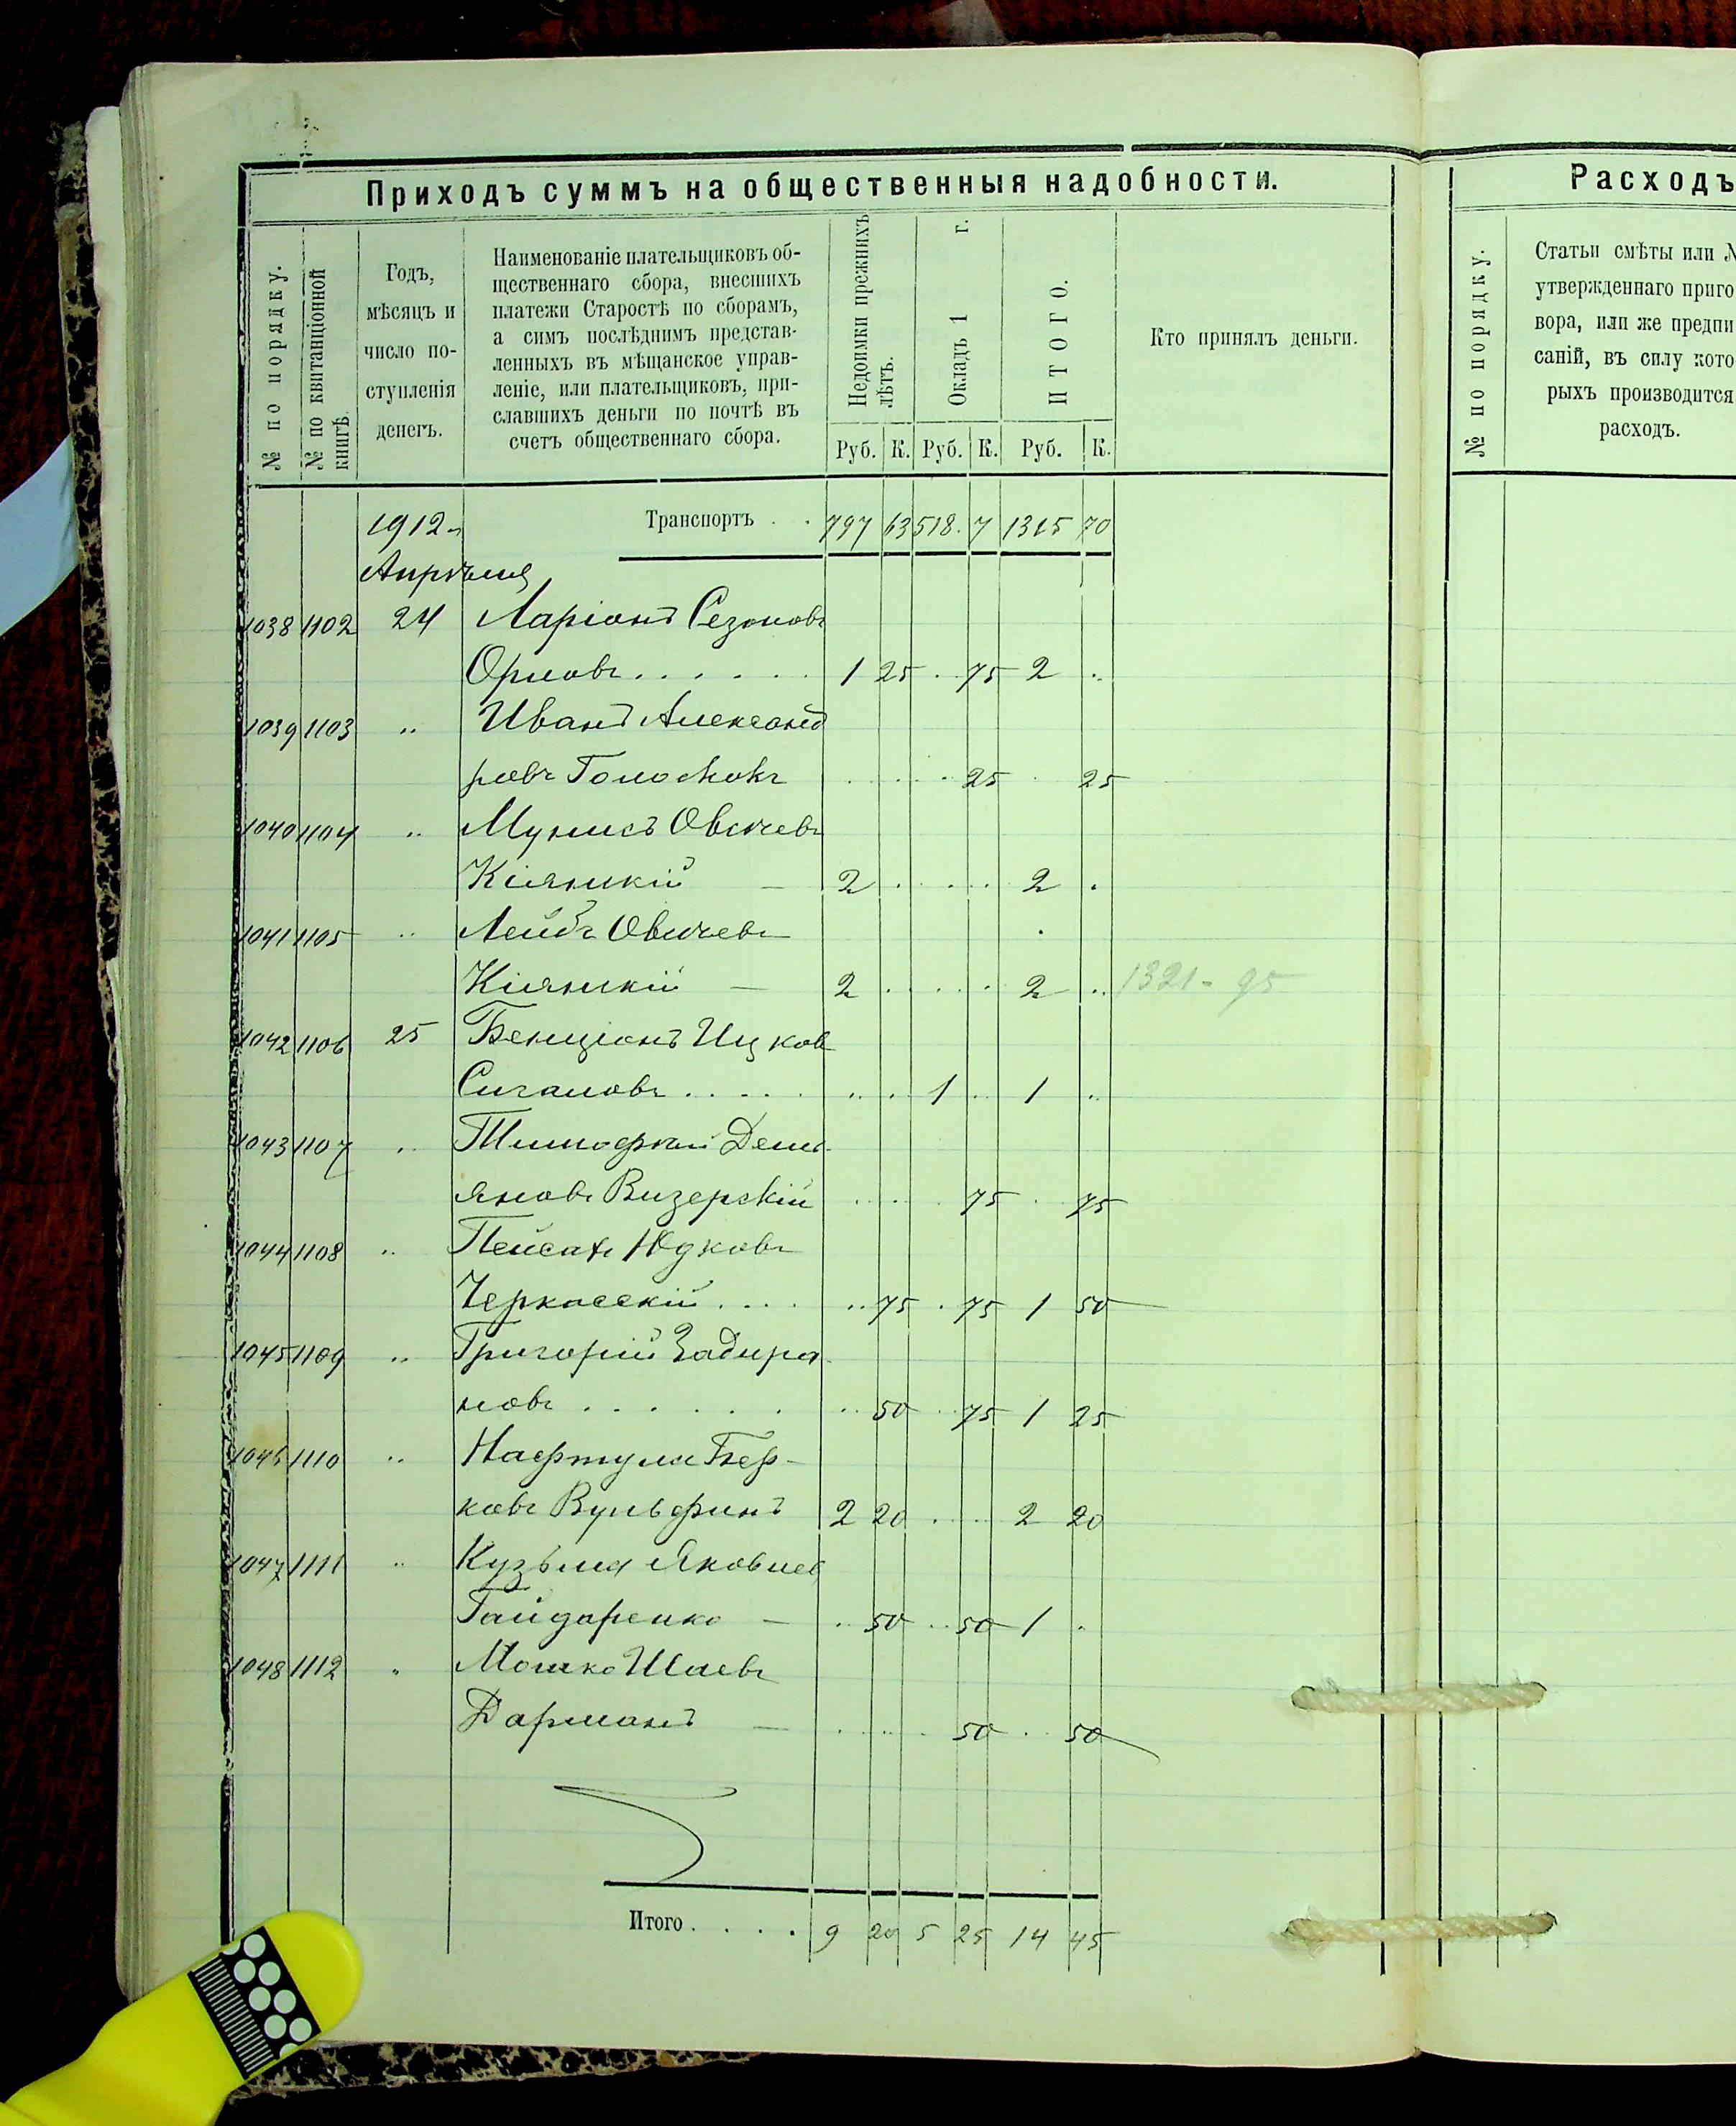 Приходъ суммъ на общественныя надобности.
№ по порядку.
№ по квитанціонной
книгѣ.
Годъ,
мѣсяцъ и
число по-
ступленія
денегъ.
Наименованіе плательщиковъ об-
щественнаго сбора, внесшихъ
платежи Старостѣ по сборамъ,
а симъ послѣднимъ представ-
ленныхъ въ мѣщанское управ-
леніе, или плательщиковъ, при-
славшихъ деньги по почтѣ въ
счетъ общественнаго сбора.
Недоимки прежнихъ
лѣтъ.
Окладъ 1 г.
ИТОГО.
Руб. К. Руб. К. Руб. К.
Кто принялъ деньги.
1912 Транспортъ . . 797 63 518 7 1315 70
Апрѣля
1038 1102 24 Ларіонъ Сезоновъ
Орловъ . . . . . . 1 25 . 75 2 ..
1039 1103 .. Иванъ Александ
ровъ . . . . 25 . 25
1040 1104 ..
Кіляцкій — 2 . . . . 2 .
1041 1105 .. Лейбъ
Кіляцкій — 2 . . . . 2 .. 1321-95
1042 1106 25 Бенціонъ Ицков
Сигаловъ . . . . . .. . 1 .. 1 ..
1043 1107 .. Тимофей Демь-
яновъ Визерскій . . . . 75 . 75
1044 1108 .. Пейсахъ Юдковъ
Черкасскій . . . . .. 75 . 75 1 50
1045 1109 .. Григорій Задира-
новъ . . . . . . .. 50 .. 75 1 25
1046 1110 .. Нафтула Бер-
ковъ Вульфинъ 2 20 . . . 2 20
1047 1111 .. Кузьма Яковлев
Гайдаренко — .. 50 .. 50 1 .
1048 1112 .. Мошко Шаевъ
Дарманъ — . . . . 50 . . 50
Итого . . . . 9 20 5 25 14 45
Расходъ
№ по порядку.
Статьи смѣты или №
утвержденнаго приго
вора, или же предпи
саній, въ силу кото
рыхъ производится
расходъ.